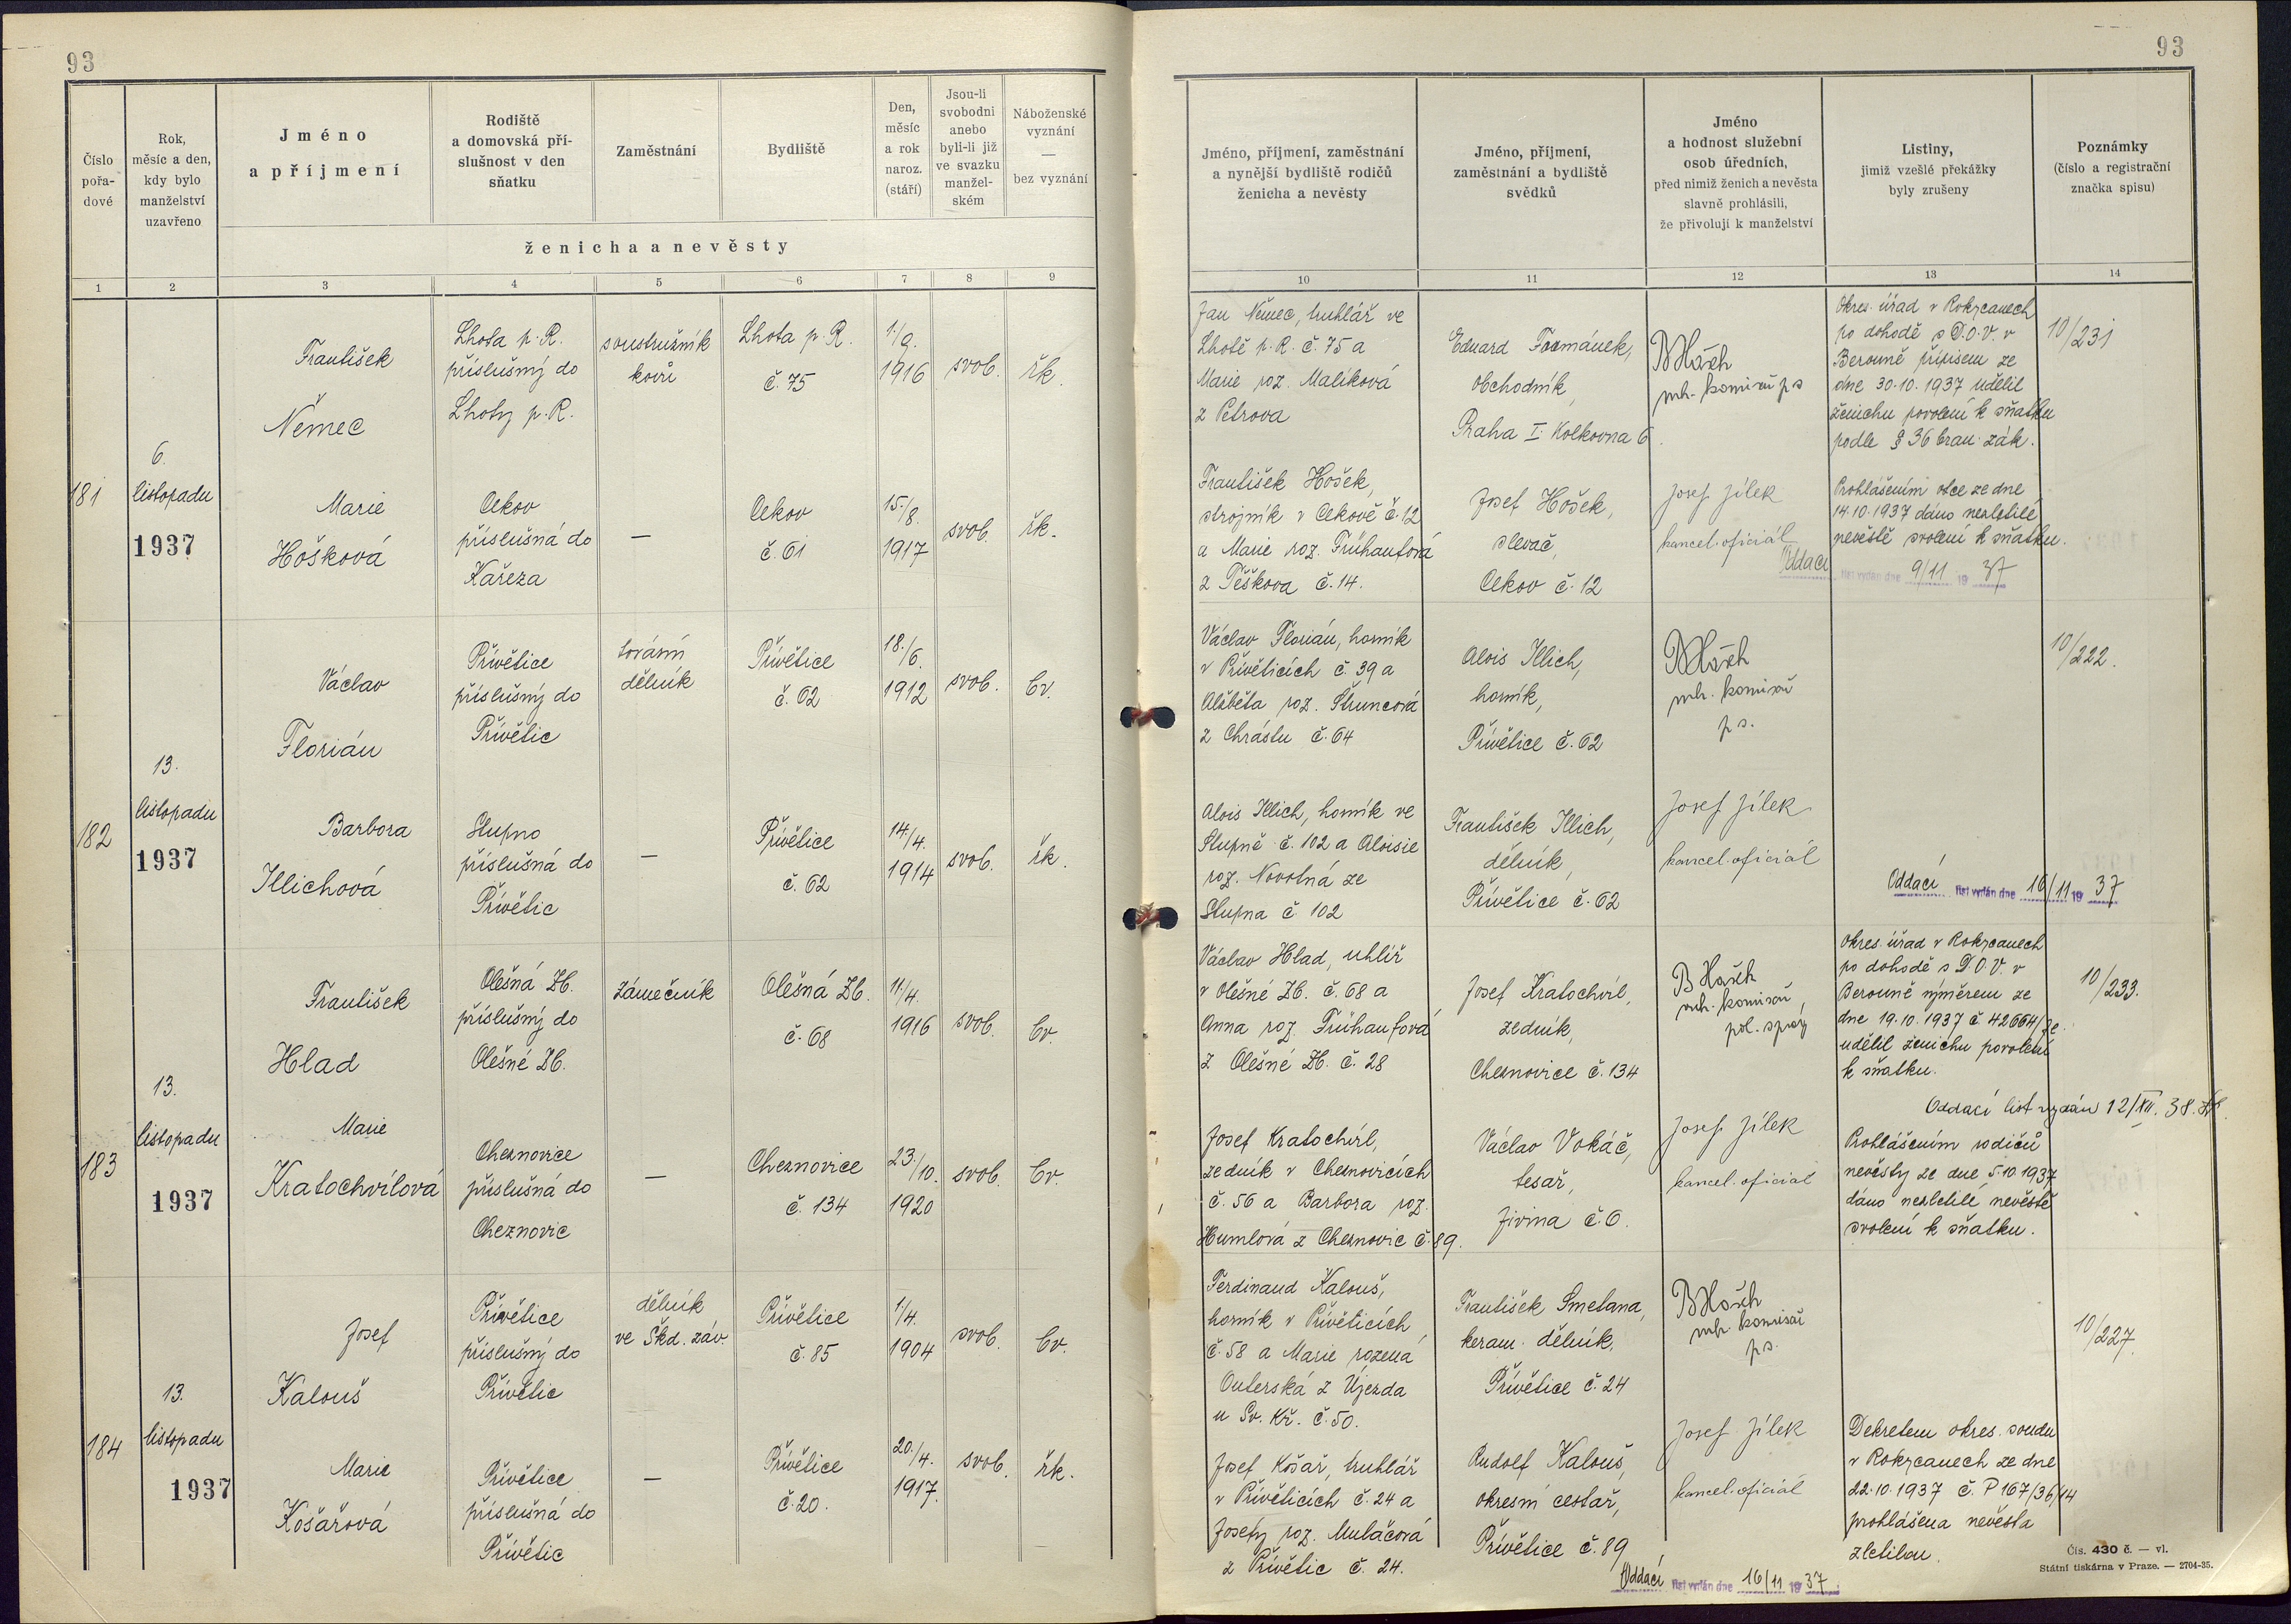 93
93
Číslo
pořa-
dové
Rok,
měsíc a den,
kdy bylo
manželství
uzavřeno
Jméno
a příjmení
Rodiště
a domovská pří-
slušnost v den
sňatku
Zaměstnání
Bydliště
Den,
měsíc
a rok
naroz.
(stáří)
Jsou-li
svobodni
anebo
byli-li již
ve svazku
manžel-
ském
Náboženské
vyznání
—
bez vyznání
ženicha a nevěsty
Jméno, příjmení, zaměstnání
a nynější bydliště rodičů
ženicha a nevěsty
Jméno, příjmení,
zaměstnání a bydliště
svědků
Jméno
a hodnost služební
osob úředních,
před nimiž ženich a nevěsta
slavně prohlásili,
že přivolují k manželství
Listiny,
jimiž vzešlé překážky
byly zrušeny
Poznámky
(číslo a registrační
značka spisu)
1 2 3 4 5 6 7 8 9 10 11 12 13 14
181
6.
listopadu
1937
František
Němec
Lhota p. R.
příslušný do
Lhoty p. R.
soustružník
kovů
Lhota p. R.
č. 75
1./9.
1916
svob.
řk.
Jan Němec, truhlář ve
Lhotě p. R. č. 75 a
Marie roz. Malíková
z Petrova
Eduard
obchodník,
Praha I. Kolkovna 6.
komisař p s
Okres. úřad v Rokycanech
po dohodě s D.O.V. v
Berouně přípisem ze
dne 30.10.1937 udělil
ženichu povolení k sňatku
podle § 36 bran. zák.
10/231
Marie
Hošková
Cekov
příslušná do
Kařeza
—
Cekov
č. 61
15./8.
1917
svob.
řk.
František Hošek,
strojník v Cekově č. 12
a Marie roz. Frühaufová
z Těškova č. 14.
Josef Hošek,
slevač,
Cekov č. 12
Josef Jílek
kancel. oficiál
Prohlášením otce ze dne
14.10.1937 dáno nezletilé
nevěstě svolení k sňatku.
Oddací list vydán dne 9/11 1937
182
13.
listopadu
1937
Václav
Florián
Přívětice
příslušný do
Přívětic
tovární
dělník
Přívětice
č. 62
18./6.
1912
svob.
čv.
Václav Florián, horník
v Příveticích č. 39 a
Alžběta roz. Štruncová
z Chrástu č. 64
Alois Illich,
horník,
Přívětice č. 62
komisař
p s.
10/222.
Barbora
Illichová
Stupno
příslušná do
Přívětic
—
Přívětice
č. 62
14./4.
1914
svob.
řk.
Alois Illich, horník ve
Stupně č. 102 a Aloisie
roz. Novotná ze
Stupna č. 102
František Illich,
dělník,
Přívětice č. 62
Josef Jílek
kancel. oficiál
Oddací list vydán dne 16/11 1937
183
13.
listopadu
1937
František
Hlad
Olešná Zb.
příslušný do
Olešné Zb.
zámečník
Olešná Zb.
č. 68
11./4.
1916
svob.
čv.
Václav Hlad, uhlíř
v Olešné Zb. č. 68 a
Anna roz. Frühaufová
z Olešné Zb. č. 28
Josef Kratochvíl,
zedník,
Cheznovice č. 134
komisař,
pol. správy
Okres. úřad v Rokycanech
po dohodě s D.O.V. v
Berouně výměrem ze
dne 19.10.1937 č. 42664/
udělil ženichu povolení
k sňatku.
10/233.
Oddací list vydán 12/XII. 38.
Marie
Kratochvílová
Cheznovice
příslušná do
Cheznovic
—
Cheznovice
č. 134
23./10.
1920
svob.
čv.
Josef Kratochvíl,
zedník v Cheznovicích
č. 56 a Barbora roz.
Humlová z Cheznovic č. 89.
Václav Vokáč,
tesař,
Jivina č. 6.
Josef Jílek
kancel. oficiál
Prohlášením rodičů
nevěsty ze dne 5.10.1937
dáno nezletilé nevěstě
svolení k sňatku.
184
13.
listopadu
1937
Josef
Kalouš
Přívětice
příslušný do
Přívětic
dělník
ve Škd. záv.
Přívětice
č. 85
1/4.
1904
svob.
čv.
Ferdinand Kalouš,
horník v Příveticích
č. 58 a Marie rozená
Outerská z Újezda
u Sv. Kř. č. 50.
František Smetana,
keram. dělník,
Přívětice č. 24
komisař
p s.
10/227.
Marie
Košařová
Přívětice
příslušná do
Přívětic
—
Přívětice
č. 20.
20./4.
1917.
svob.
řk.
Josef Košař, truhlář
v Příveticích č. 24 a
Josefy roz. Mulačová
z Přívětic č. 24.
Rudolf Kalouš,
okresní cestář,
Přívětice č. 89
Josef Jílek
kancel. oficiál
Dekretem okres. soudu
v Rokycanech ze dne
22.10.1937 č. P 167/36/14
prohlášena nevěsta
zletilou.
Oddací list vydán dne 16/11 1937
Čís. 430 č. — vl.
Státní tiskárna v Praze. — 2704-35.